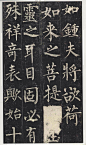 如鍾夫將欲荷
如來之菩提
靈之耳目固必有
殊祥奇表歟始十